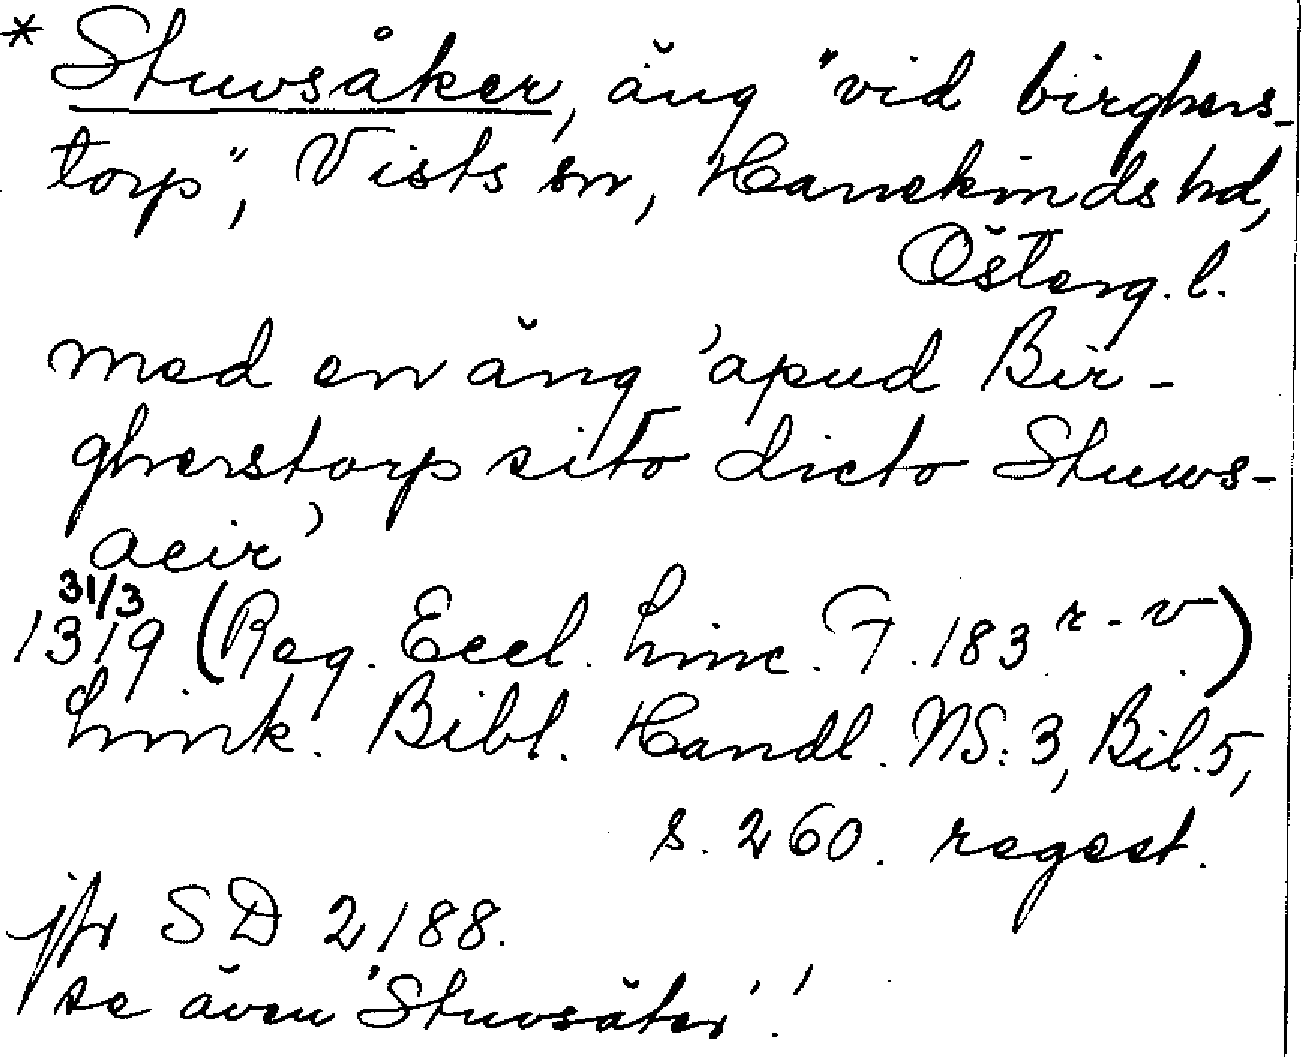 * Stuvsåker, äng "vid birghers-
torp", Vists sn, Hanekinds hd,
Österg. l.
med en äng 'apud Bir-
gherstorp sito dicto Stuws-
acir'
31/3
1319 (Reg. Eccl. Linc. F. 183 r-v.)
Link. Bibl. Handl. NS: 3, Bil. 5,
s. 260. regest.
jfr SD 2188.
se även 'Stuvsäter'!